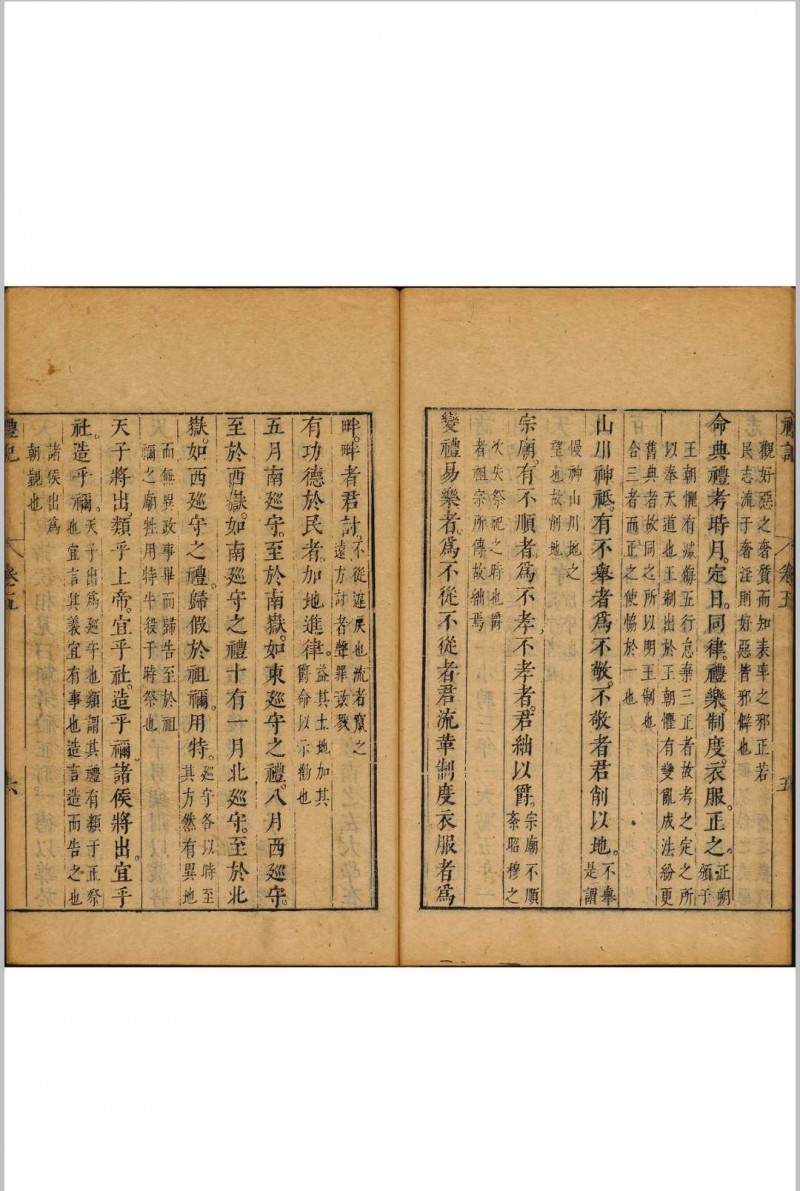 觀好惡之奢質而知表率之邪正若
民志流于奢淫則好惡皆邪僻也
命典禮考時月定日同律禮樂制度衣服正之正朔
頒于
王朝懼有
以奉天道也王制出於王朝懼有變亂成法紛更
舊典者故同之所以明王制也
合三者而正之使恊於一也
山川神祗有不舉者爲不敬不敬者君削以地不舉
是謂
慢神山川地之
望也故削地
宗廟有不順者爲不孝不孝者君絀以爵宗廟不順
紊昭穆之
次失祭祀之時也爵
者祖宗所傳故絀焉
變禮易樂者爲不從不從者君流革制度衣服者爲
畔畔者君討不從違戾也流者竄之
遠方討者聲罪致戮
有功德於民者加地進律益其土地加其
爵命以示勸也
五月南廵守至於南嶽如東廵守之禮八月西廵守
至於西嶽如南廵守之禮十有一月北廵守至於北
嶽如西廵守之禮歸假於祖禰用特廵守各以時至
其方然有異地
而無異政事畢而歸告至於祖
禰之廟牲用特牛殺于時祭也
天子將出類乎上帝宜乎社造乎禰諸侯將出宜乎
社造乎禰天子出爲廵守也類謂其禮有類于正祭
也宜言其義宜有事也造言造而告之也
諸侯出爲
朝觀也
禮記
卷五
六